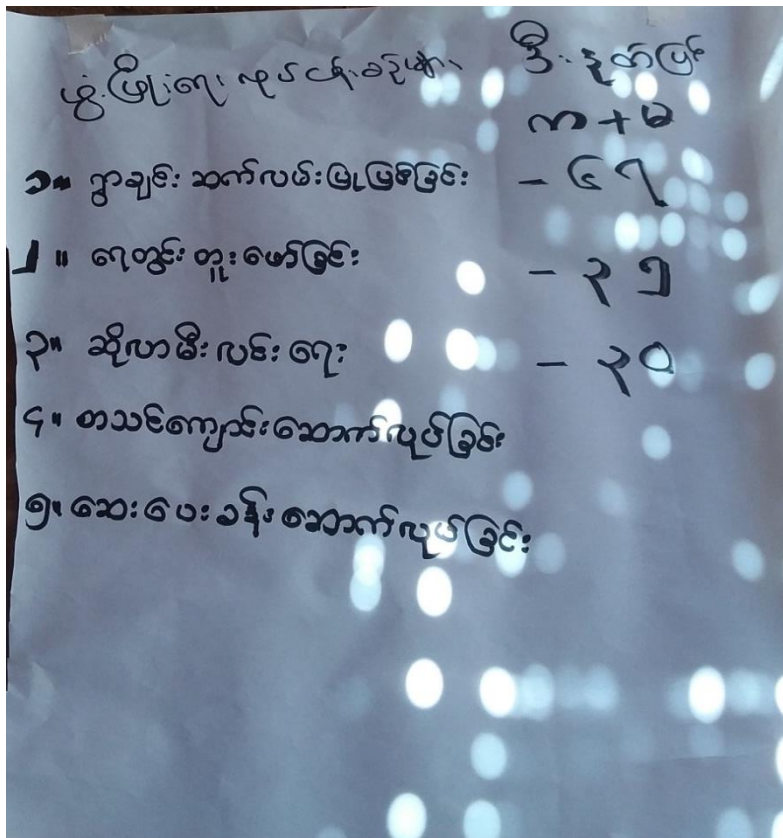 ဖွံ့ဖြိုးရေး လုပ်ငန်းစဉ်များ ဦးနှက်ပြင်
ကာ + မ
၁။ ရွာချင်း ဆက်လမ်းပြုပြင်ခြင်း - ၆၇
၂။ ရေတွင်း တူးဖော်ခြင်း - ၃၅
၃။ ဆိုလာမီးလင်းရေး - ၃၀
၄။ စာသင်ကျောင်းဆောက်လုပ်ခြင်း
၅။ ဆေးပေးခန်းဆောက်လုပ်ခြင်း